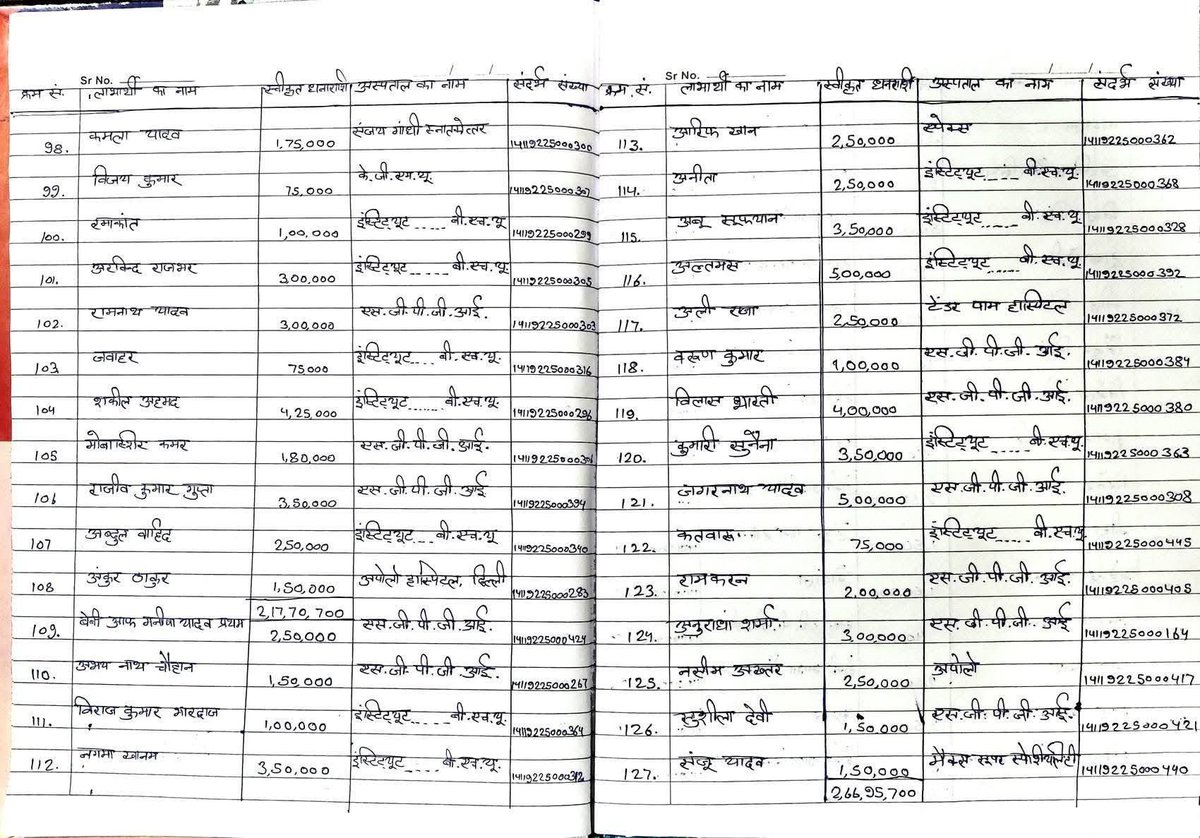 Sr No.
क्रम सं. लाभार्थी का नाम स्वीकृत धनराशी अस्पताल का नाम संदर्भ संख्या
98. कमला यादव 1,75,000 संजय गांधी स्नातकोत्तर 14119225000300
99. विजय कुमार 75,000 के.जी.एम.यू. 14119225000307
100. रमाकांत 1,00,000 इंस्टिट्यूट ..... बी.एच.यू. 14119225000299
101. अरविन्द राजभर 3,00,000 इंस्टिट्यूट ..... बी.एच.यू. 14119225000305
102. रामनाथ यादव 3,00,000 एस.जी.पी.जी.आई. 14119225000303
103 जवाहर 75000 इंस्टिट्यूट .... बी.एच.यू. 14119225000316
104 शकील अहमद 4,25,000 इंस्टिट्यूट ...... बी.एच.यू. 14119225000296
105 मोबाश्शिर कमर 1,80,000 एस.जी.पी.जी.आई.
106 राजीव कुमार गुप्ता 3,50,000 एस.जी.पी.जी.आई 14119225000394
107 अब्दुल वाहिद 2,50,000 इंस्टिट्यूट .... बी.एच.यू 14119225000340
108 अंकुर ठाकुर 1,50,000 अपोलो हास्पिटल, दिल्ली 14119225000283
2,17,70,700
109. बेबी आफ मनीषा यादव प्रथम 2,50,000 एस.जी.पी.जी.आई. 14119225000424
110. अभय नाथ चौहान 1,50,000 एस.जी.पी.जी.आई. 14119225000267
111. विराज कुमार भारद्वाज 1,00,000 इंस्टिट्यूट ..... बी.एच.यू. 14119225000364
112. नगमा खानम 3,50,000 इंस्टिट्यूट ..... बी.एच.यू.
Sr No.
क्रम. सं. लाभार्थी का नाम स्वीकृत धनराशी अस्पताल का नाम संदर्भ संख्या
113. आरिफ खान 2,50,000 14119225000362
114. अनीता 2,50,000 इंस्टिट्यूट ..... बी.एच.यू. 14119225000368
115. अबू सूफयान 3,50,000 इंस्टिट्यूट ..... बी.एच.यू. 14119225000328
116. अल्तमस 5,00,000 इंस्टिट्यूट ..... बी.एच.यू. 14119225000392
117. अली रजा 2,50,000 टेंडर पाम हास्पिटल 14119225000372
118. वरूण कुमार 1,00,000 एस.जी.पी.जी.आई. 14119225000384
119. विलास भारती 4,00,000 एस.जी.पी.जी.आई. 14119225000380
120. कुमारी सुनैना 3,50,000 इंस्टिट्यूट ..... बी.एच.यू. 14119225000363
121. जंगरनाथ यादव 5,00,000 एस.जी.पी.जी.आई. 14119225000308
122. कतवारू 75,000 इंस्टिट्यूट ..... बी.एच.यू 14119225000445
123. रामकरन 2,00,000 एस.जी.पी.जी.आई. 14119225000405
124. अनुराधा शर्मा 3,00,000 एस.जी.पी.जी.आई 14119225000164
125. नसीम अख्तर 2,50,000 अपोलो 14119225000417
126. सुशीला देवी 1,50,000 एस.जी.पी.जी.आई. 14119225000421
127. संजू यादव 1,50,000 मैक्स सुपर स्पेशियलिटी 14119225000440
2,66,95,700